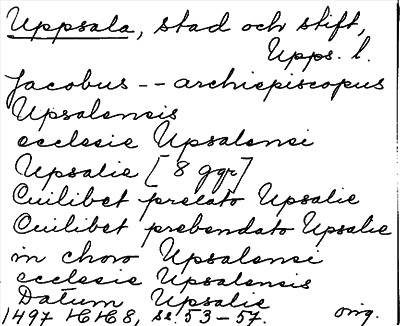 Uppsala, stad och stift,
Upps. l.
Jacobus -- archiepiscopus
Upsalensis
ecclesie Upsalensi
Upsalie [8 ggr]
Cuilibet prelato Upsalie
Cuilibet prebendato Upsalie
in choro Upsalensi
ecclesie Upsalensis
Datum Upsalie
1497 ss. 53-57. orig.